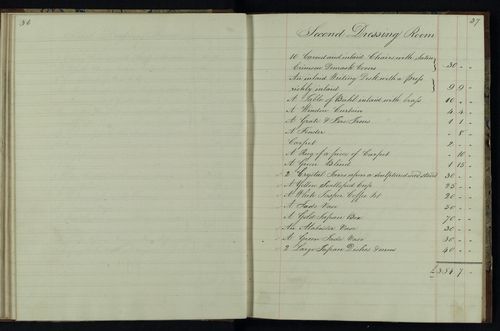 36
37
Second Dressing Room
10 Carved and inlaid Chairs with Satin
Crimson Damask Covers 30 - -
An inlaid Writing Desk with a Press
richly inlaid 9 9 -
A Table of Buhl inlaid with brass 10 - -
A Window Curtain 4 4 -
A Grate & Fire Irons 1 1 -
A Fender - 8 -
Carpet 2 - -
A Rug of a piece of Carpet - 10 -
A Green Blind 1 15 -
2 Crystal Vases upon a sculptured stand 30 - -
A Yellow Scalloped Cup 25 - -
A White Jasper Coffee 20 - -
A Jade Vase 50 - -
A Gold Japan Box 70 - -
An Alabaster Vase 30 - -
A Green Jade Vase 30 - -
2 Large Japan Dishes 40 - -
£354 7 -